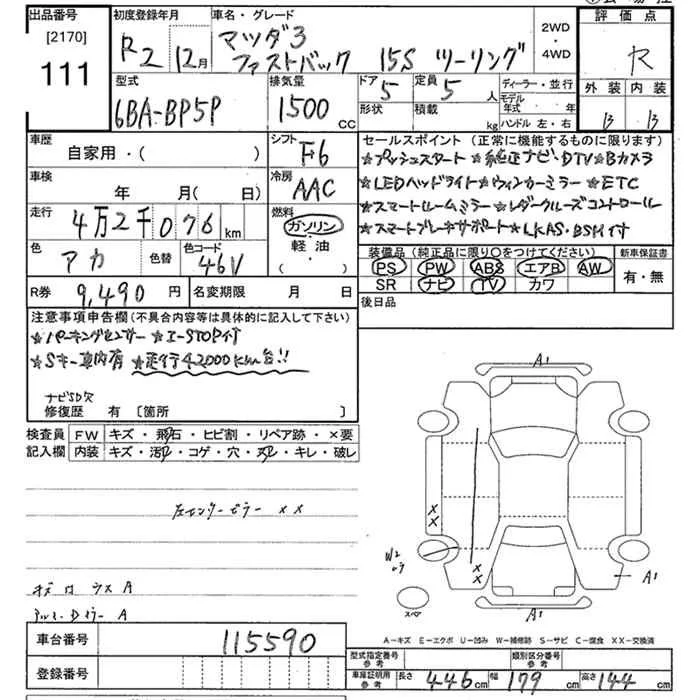 出品番号
[2170]
111
初度登録年月
R2 12月
車名・グレード
マツダ3
ファストバック 15S ツーリング
2WD
・
4WD
評価点
R
外装 内装
B B
型式
6BA-BP5P
排気量
1500 CC
ドア 5
形状
定員 5 人
積載 kg
ディーラー・並行
モデル年式 ・ 年
ハンドル 左・右
車歴
自家用・( )
シフト
F6
車検
年 月( 日)
冷房
AAC
走行
4万2千076 km
燃料
ガソリン
軽油
( ・ )
色
アカ
色替
色コード
46V
R券 9,490 円
名変期限 月 日
セールスポイント (正常に機能するものに限ります)
★プッシュスタート ★純正ナビ・DTV★Bカメラ
★LEDヘッドライト★ウィンカーミラー ★ETC
★スマートルームミラー ★レダークルーズコントロール
★スマートブレーキサポート★LKAS・BSM付
装備品(純正品に限り○をつけてください)
PS PW ABS エアB AW
SR ナビ TV カワ
新車保証書
有・無
後日品
注意事項申告欄(不具合内容等は具体的に記入して下さい)
★パーキングセンサー ★i-STOP付
★Sキー車内有 ★走行42000km台!!
ナビSD欠
修復歴 有 〔箇所 〕
検査員 FW キズ・飛石・ヒビ割・リペア跡・×要
記入欄 内装 キズ・汚レ・コゲ・穴・スレ・キレ・破レ
左センターピラー XX
A1
XX
W2
XX
A1
スペア
A1
A-キズ E-エクボ U-凹み W-補修跡 S-サビ C-腐食 XX-交換済
車台番号 115590
登録番号
型式指定番号 参考
類別区分番号 参考
車庫証明用 参考 長さ 446 cm 幅 179 cm 高さ 144 cm